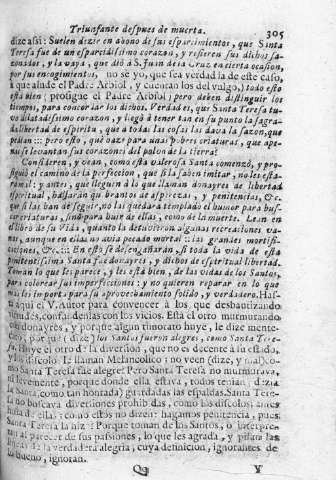 Triunfante despues de muerta. 305
dize assi: Suelen dezir en abono de sus esparcimientos, que Santa
Teresa fue de un esparcidissimo corazon, y refieren sus dichos sa-
zonados, y la vaya, que dió à S. Juan de la Cruz en cierta ocasion,
por sus encogimientos, no se yo, que sea verdad la de este caso,
à que alude el Padre Arbiol, y cuentan los del vulgo, todo està
bien; prosigue el Padre Arbiol; pero deben distinguir los
tiempos, para concordar los dichos. Verdad es, que Santa Teresa tu-
vo dilatadissimo corazon, y llegò à tener tan en su punto la sagra-
da libertad de espiritu, que à todas las cosas las dava la sazon, que
pedian::: pero esto, què haze para unas pobres criaturas, que ape-
nas levantan sus corazones del polvo de la tierra?
Consideren, y vean, como esta valerosa Santa comenzò, y prosi-
guiò el camino de la perfeccion, que si la saben imitar, no les està-
ra mal: y antes, que lleguen à lo que llaman donayres de libertad
espiritual, hallaràn quebrantos de asperezas, y penitencias, &c.
que si las han de seguir, no las quedarà templado el humor para bus-
car criaturas, sino para huir de ellas, como de la muerte. Lean en
el libro de su Vida, quanto la detuvieron algunas recreaciones va-
nas, aunque en ellas no avia pecado mortal::: las grandes mortifi-
caciones, &c.::: En esto se desengañaràn, si toda la vida de esta
penitentissima Santa fue donayres, y dichos de espiritual libertad.
Toman lo que les parece, y les està bien, de las vidas de los Santos,
para colorear sus imperfecciones: y no quieren reparar en lo que
mas les importa para su aprovechamiento solido, y verdadero. Has-
ta aqui el V. Autor para convencer à los que desbautizando
virtudes, confederanlas con los vicios. Està el otro murmurando
con donayres, y porque algun timorato huye, le dize mente-
cato, por què (dize) los Santos fueron alegres, como Santa Tere-
sa. Huye el otro de la diversion, que no es decente à su estado,
y los discolos le llaman Melancolico: no veen (dize, y mal) co-
mo Santa Teresa fue alegre? Pero Santa Teresa no murmurava,
ni levemente, porque donde ella estava, todos tenian (dezia
la Santa, como tan honrada) guardadas las espaldas. Santa Tere-
sa no buscava diversiones prohibidas, como los discolos, antes
huía de ellas: como estos no dizen: hagamos penitencia, pues
Santa Teresa la hizo? Porque toman de los Santos, ò interpretan
al parecer de sus passiones, lo que les agrada, y pisan las
de la verdadera alegria, cuya definicion, ignorantes de
lo bueno, ignoran.
Qq Y